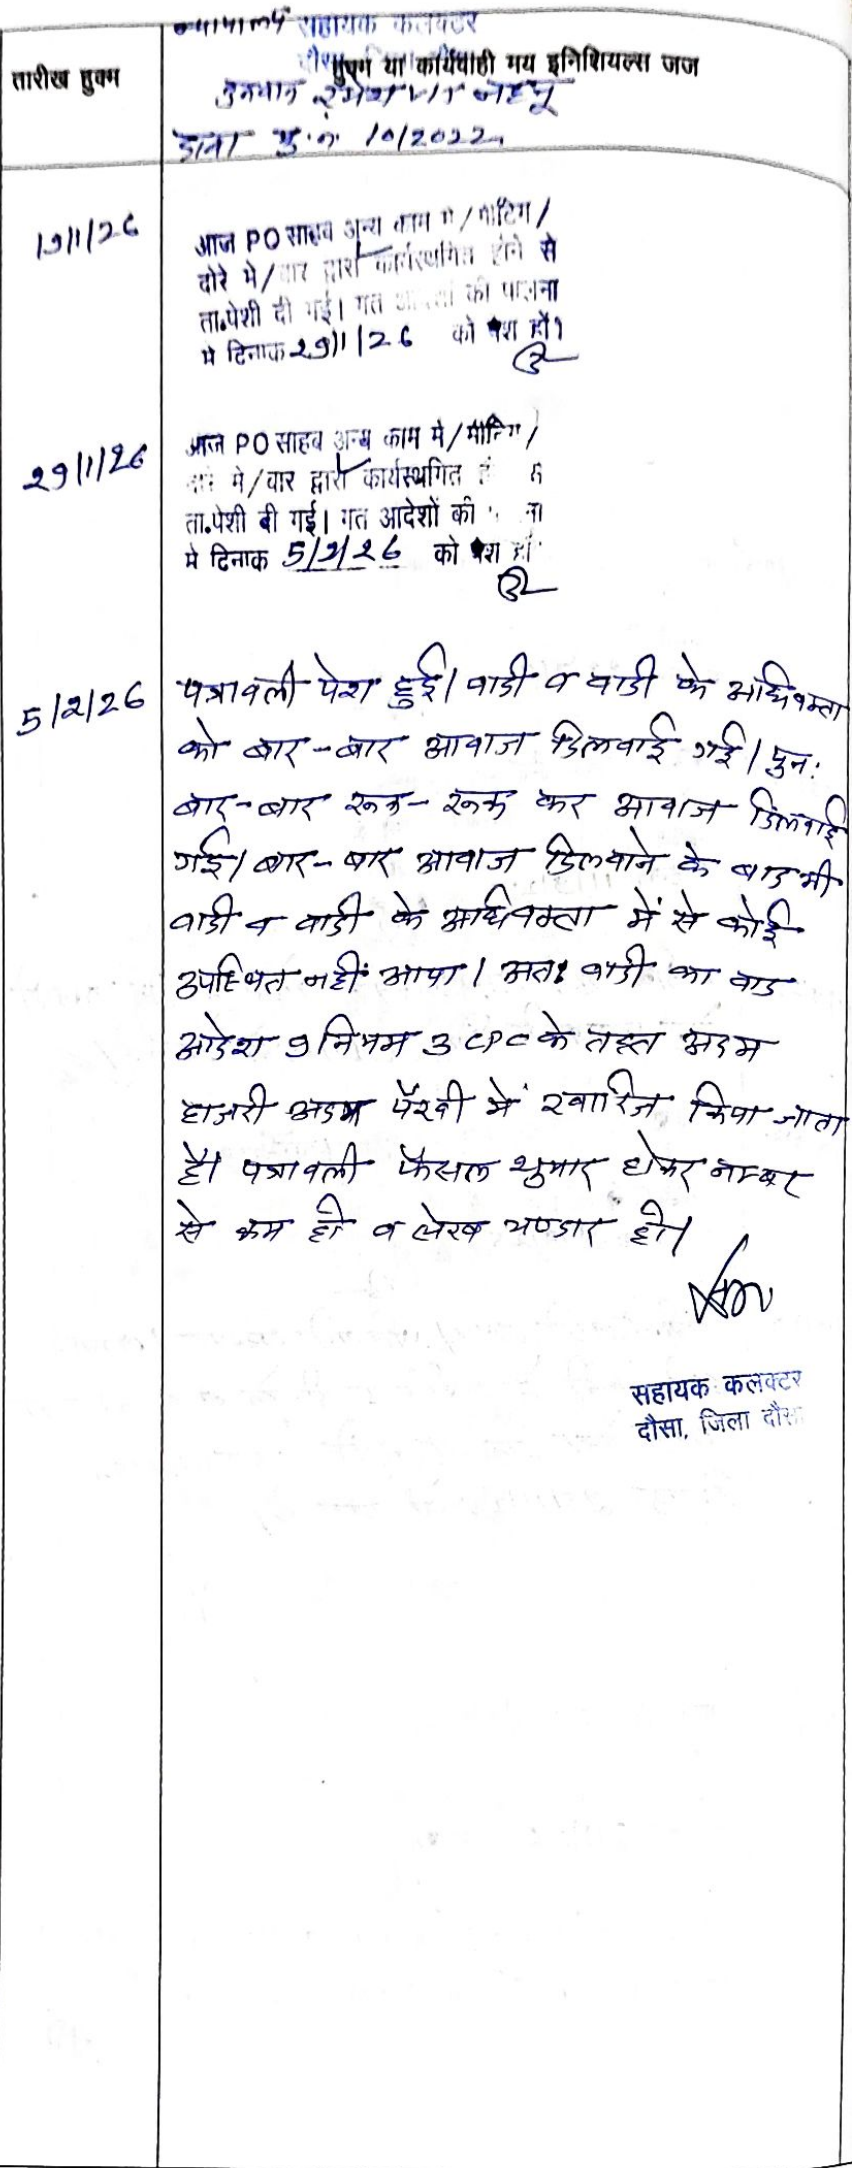 न्यायालय सहायक कलक्टर
तारीख हुक्म
हुक्म या कार्यवाही मय इनिशियल्स जज
रमेश V/s
मु.न. 10/2022
19/1/26
आज PO साहब अन्य काम मे/मीटिंग/
दोरे मे/बार द्वारा कार्यस्थगित होने से
ता.पेशी दी गई। गत आदेशों की पालना
मे दिनाक 29/1/26 को पेश हों।
29/1/26
आज PO साहब अन्य काम मे/मीटिंग/
मे/बार द्वारा कार्यस्थगित
ता.पेशी दी गई। गत आदेशों की
मे दिनाक 5/2/26 को पेश हों
5/2/26
पत्रावली पेश हुई। वादी व वादी के अधिवक्ता
को बार-बार आवाज दिलवाई गई। पुन:
बार-बार रूक-रूक कर आवाज दिलवाई
गई। बार-बार आवाज दिलवाने के बाद भी
वादी व वादी के अधिवक्ता में से कोई
उपस्थित नहीं आया। अतः वादी का वाद
आदेश 9 नियम 3 CPC के तहत अदम
हाजरी अदम पैरवी में खारिज किया जाता
है। पत्रावली फैसल शुमार होकर नम्बर
से कम हो व लेख भण्डार हो।
सहायक कलक्टर
दौसा, जिला दौसा